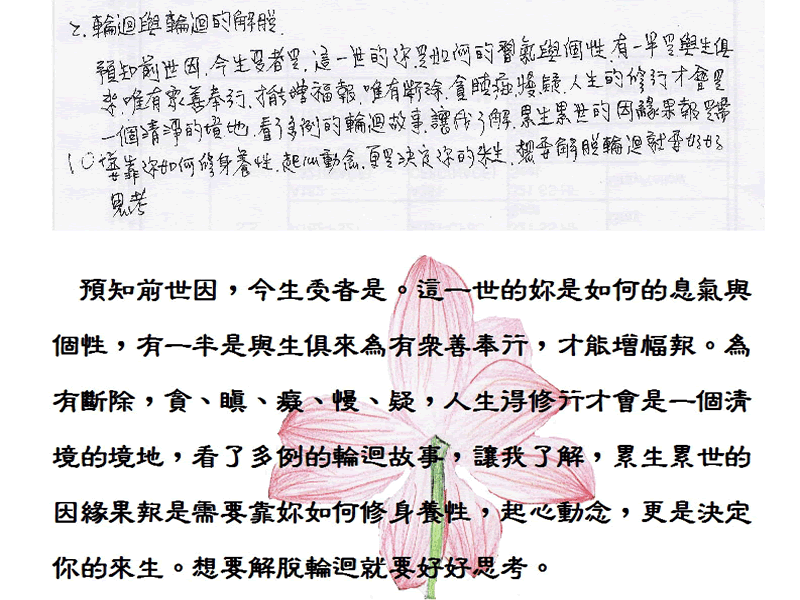 2.輪迴與輪迴的解脫.
預知前世因.今生受者是.這一世的你是如何的習氣與個性.有一半是與生俱
來.唯有眾善奉行.才能增福報.唯有斷除.貪瞋痴慢疑.人生的修行才會是
一個清淨的境地.看了多例的輪迴故事.讓我了解.累生累世的因緣果報是需
10 要靠你如何修身養性.起心動念.更是決定你的來生.想要解脫輪迴就要好好
思考
預知前世因，今生受者是。這一世的妳是如何的息氣與
個性，有一半是與生俱來為有眾善奉行，才能增幅報。為
有斷除，貪、瞋、癡、慢、疑，人生得修行才會是一個清
境的境地，看了多例的輪迴故事，讓我了解，累生累世的
因緣果報是需要靠妳如何修身養性，起心動念，更是決定
你的來生。想要解脫輪迴就要好好思考。